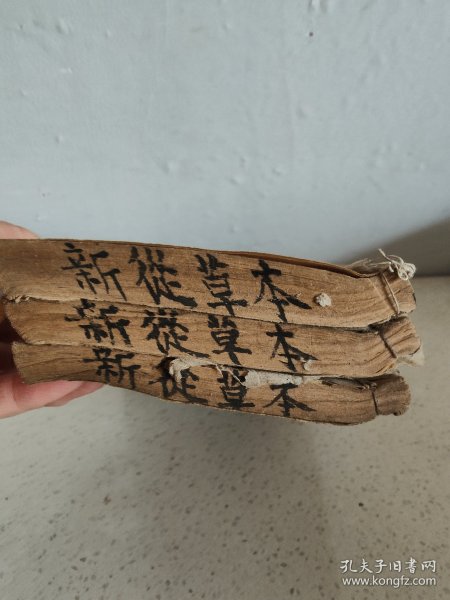 新從草本
新從草本
新從草本
孔夫子旧书网
www.kongfz.com